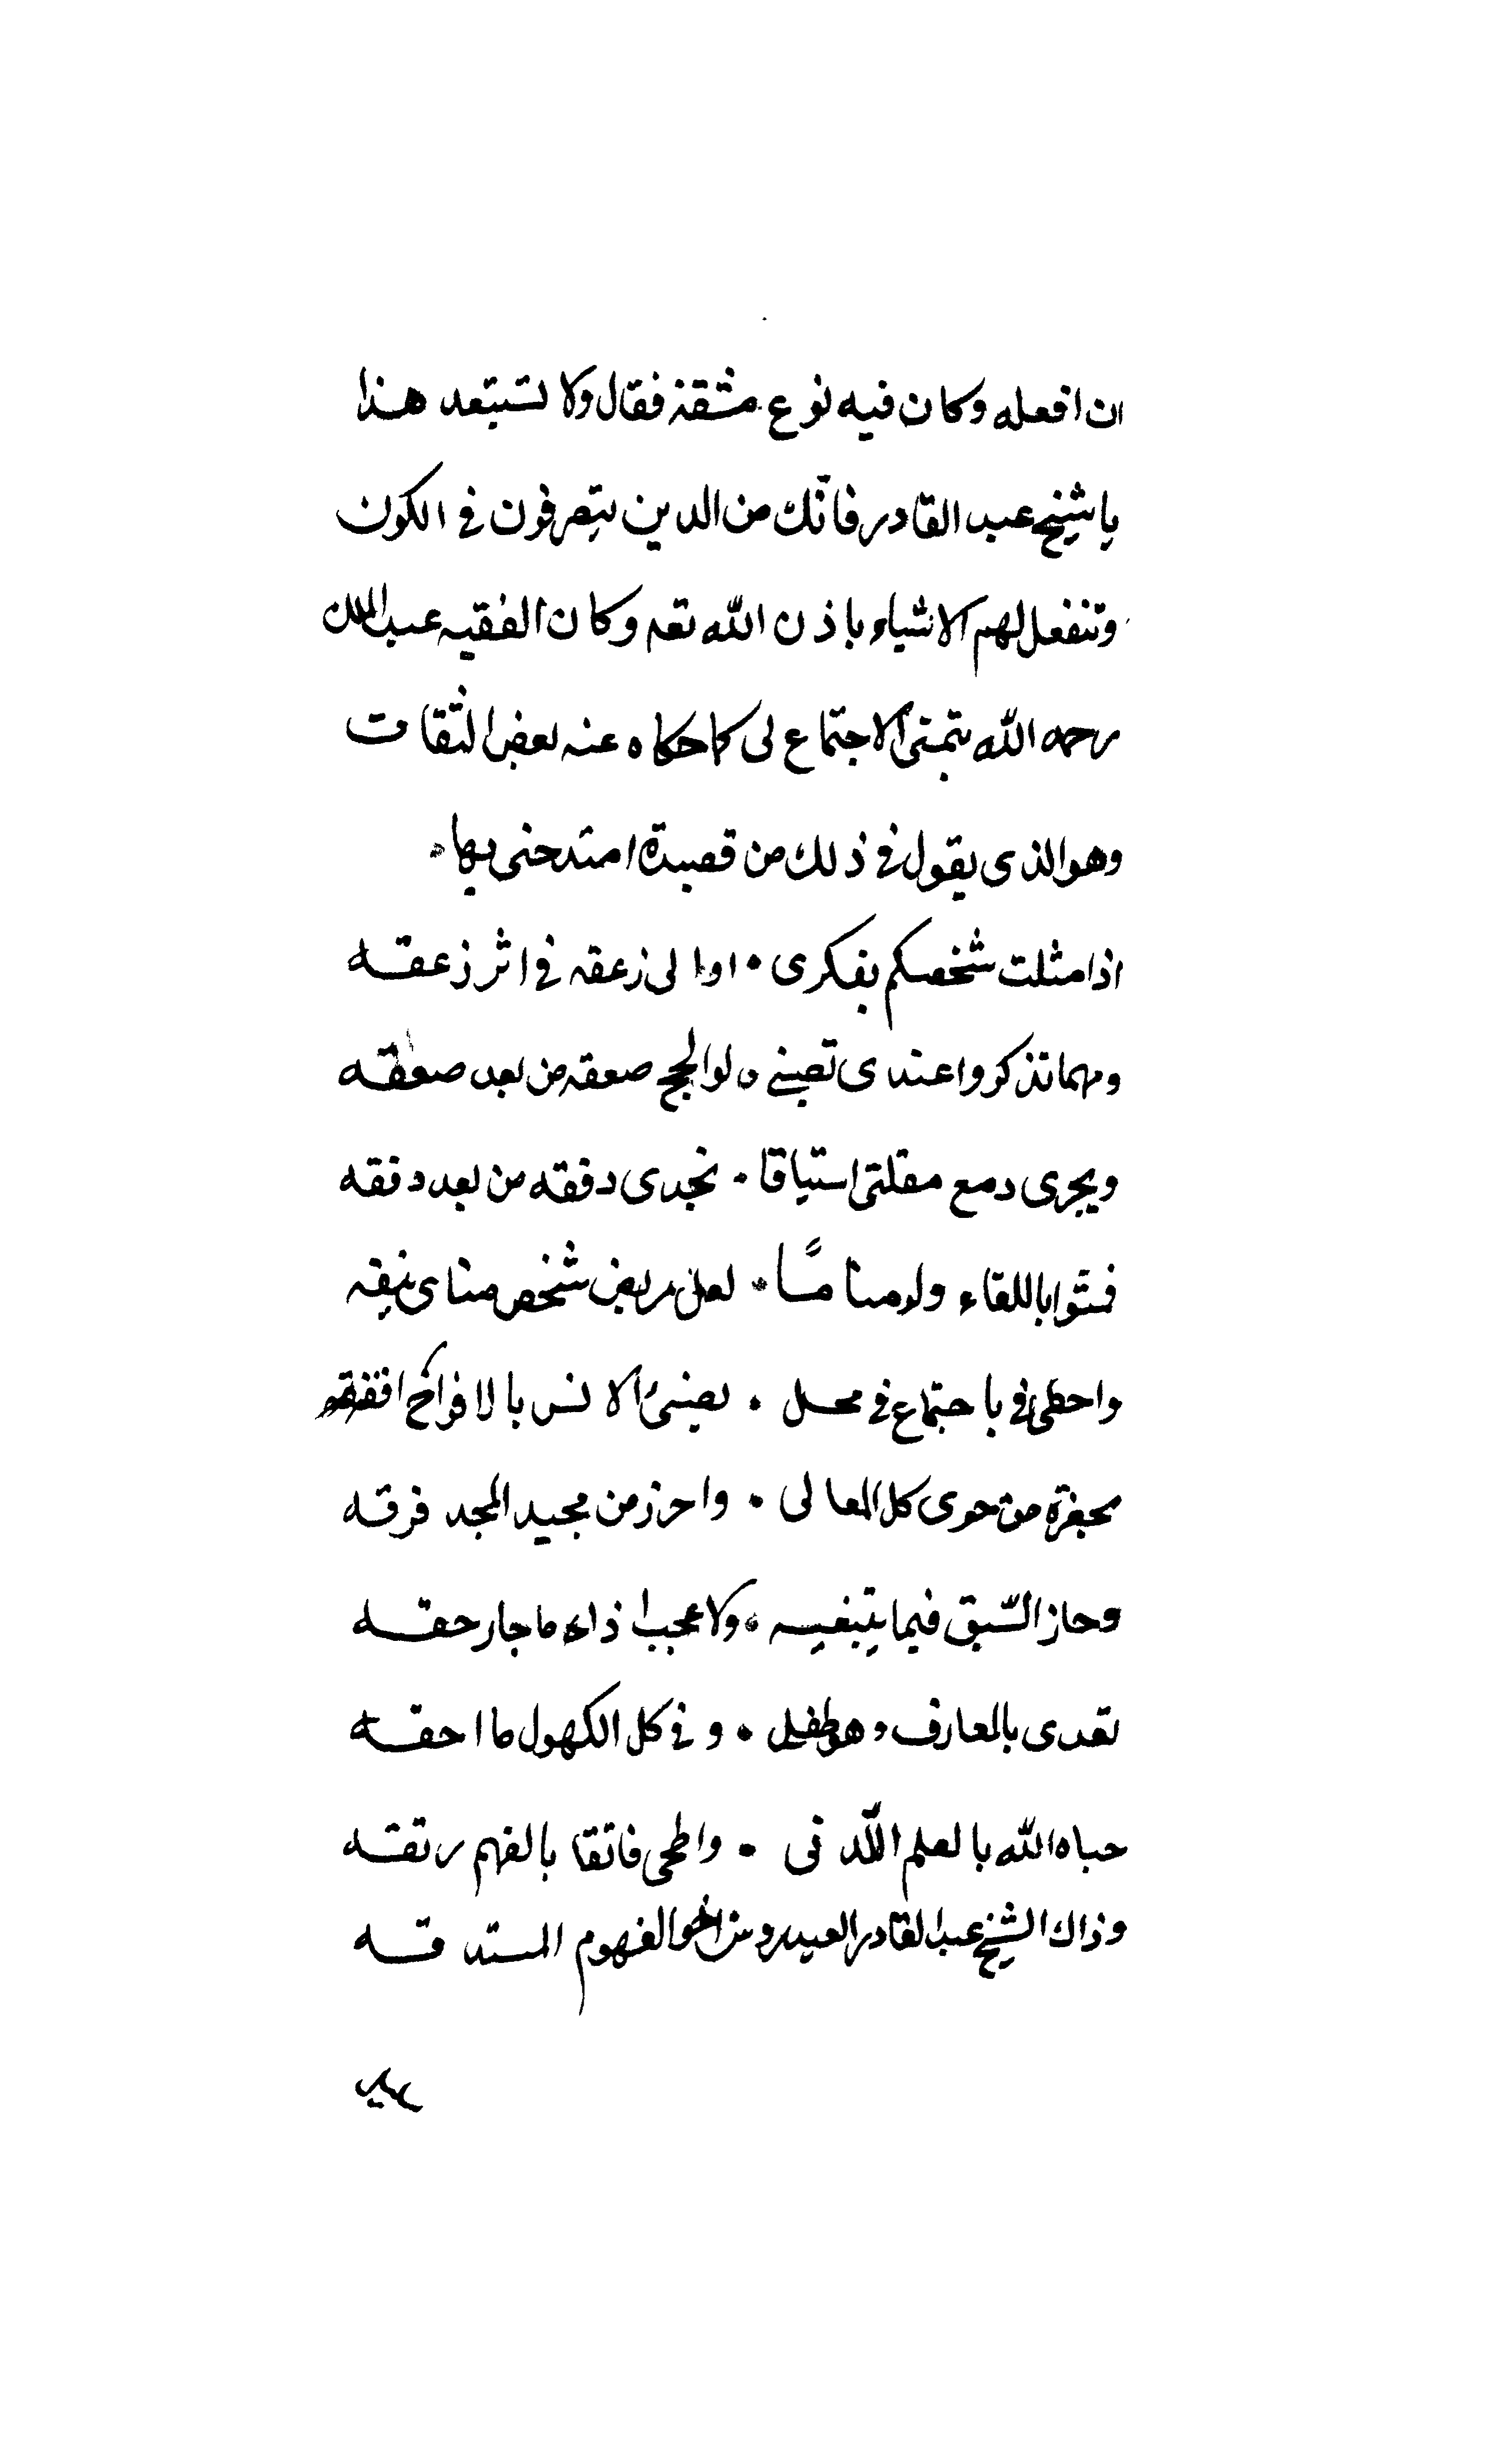 ان افعله وكان فيه نوع مشقة فقال ولا تستبعد هذا
يا شيخ عبد القادر فانّك من الدين يتصرفون في الكون
وتنفعل لهم الاشياء باذن الله تعه وكان الفقيه عبد الملك
رحمه الله يتمنى الاجتماع لى كما حكاه عنه بعض الثقات
وهو الذى يقول في ذلك من قصيدة امتدحنى بها
اذا مثلت شخصكم بفكرى • اوا لى زعقه في اثر زعقه
ومهما تذكروا عندى تصبني • لواعج صعقه من بعد صعقه
ويجرى دمع مقلتى اشتياقا • نجدى دفقه من بعد دفقه
فمنّوا باللقاء ولو منامًا • لعل مريض شخص مناى ينقه
واحظى في باجتماع في محل • يضئ الانس بالافراح افقه
بحضرة من حوى كل المعالى • واحرز من مجيد المجد فرقه
وحاز السّبق فيما يبتغيه • ولا عجبا ذا ما جاز حقه
تعدى بالمعارف وهو طفل • وفي كل الكهول ما احقه
حباه الله بالعلم اللّدنى • واضحى فاتقا بالفهم رتقه
وذاك الشيخ عبد القادر العيدروس اخو الفهوم المستدقه